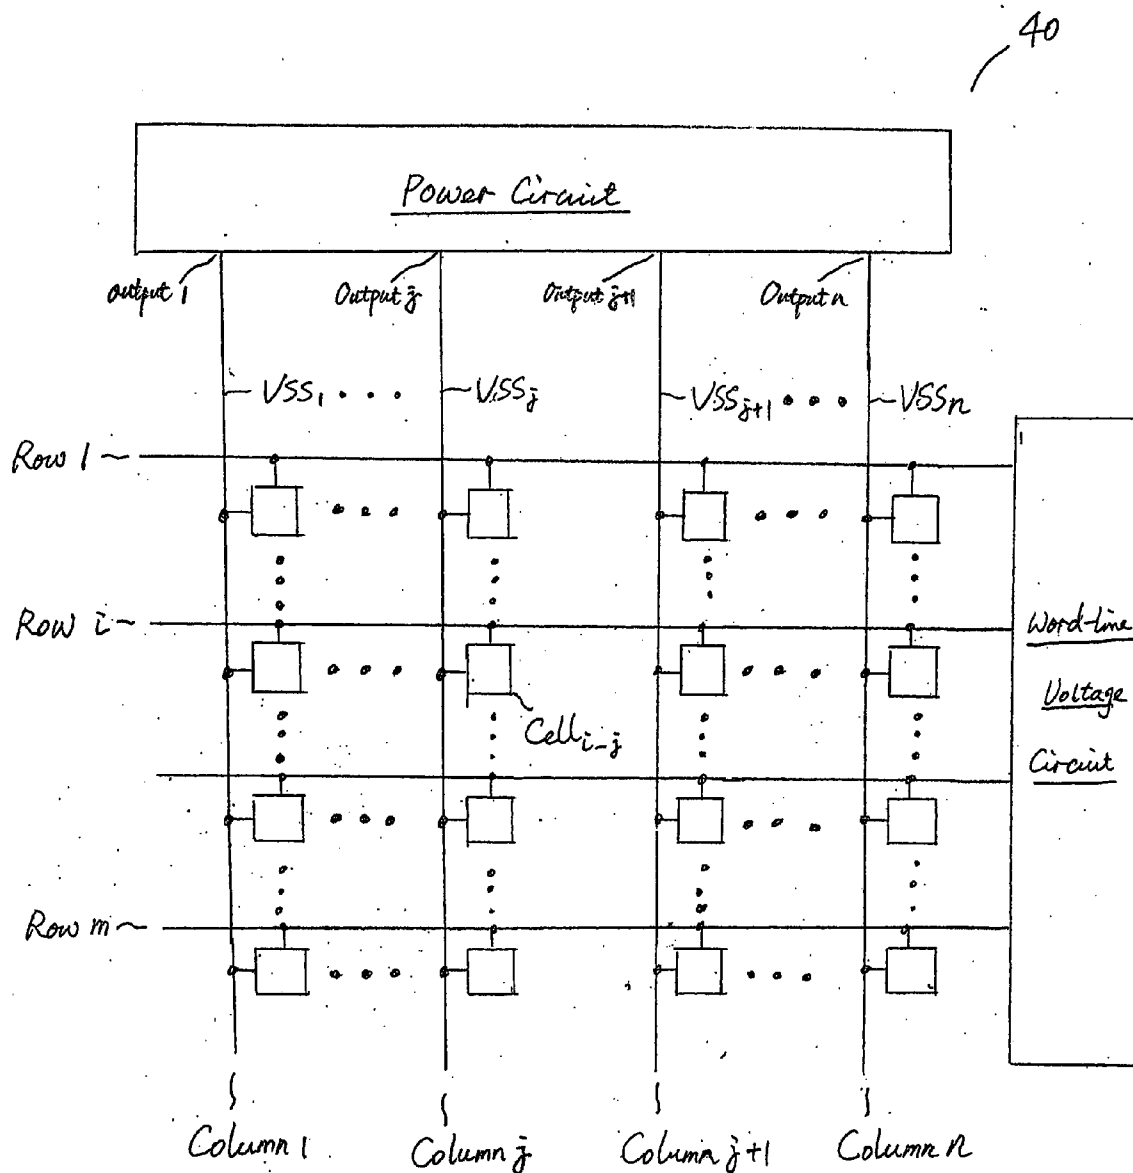 40
Power Circuit
output 1 Output j Output j+1 Output n
VSS₁ ... VSSⱼ VSSⱼ₊₁ ... VSSn
Row 1
Row i
Word-line
Cell i-j
Voltage
Circuit
Row m
Column 1 Column j Column j+1 Column n